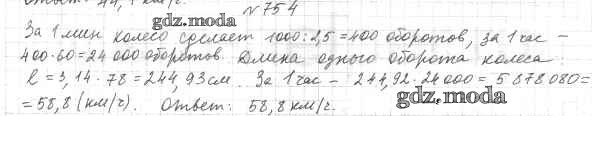 Ответ: 44,1 км/ч.
№754
gdz.moda
За 1 мин колесо сделает 1000:2,5=400 оборотов, за 1 час –
400·60=24 000 оборотов. Длина одного оборота колеса:
l = 3,14 · 78 = 244,93 см. За 1 час – 244,92·24000 = 5 878 080 =
= 58,8 (км/ч). Ответ: 58,8 км/г.
gdz.moda